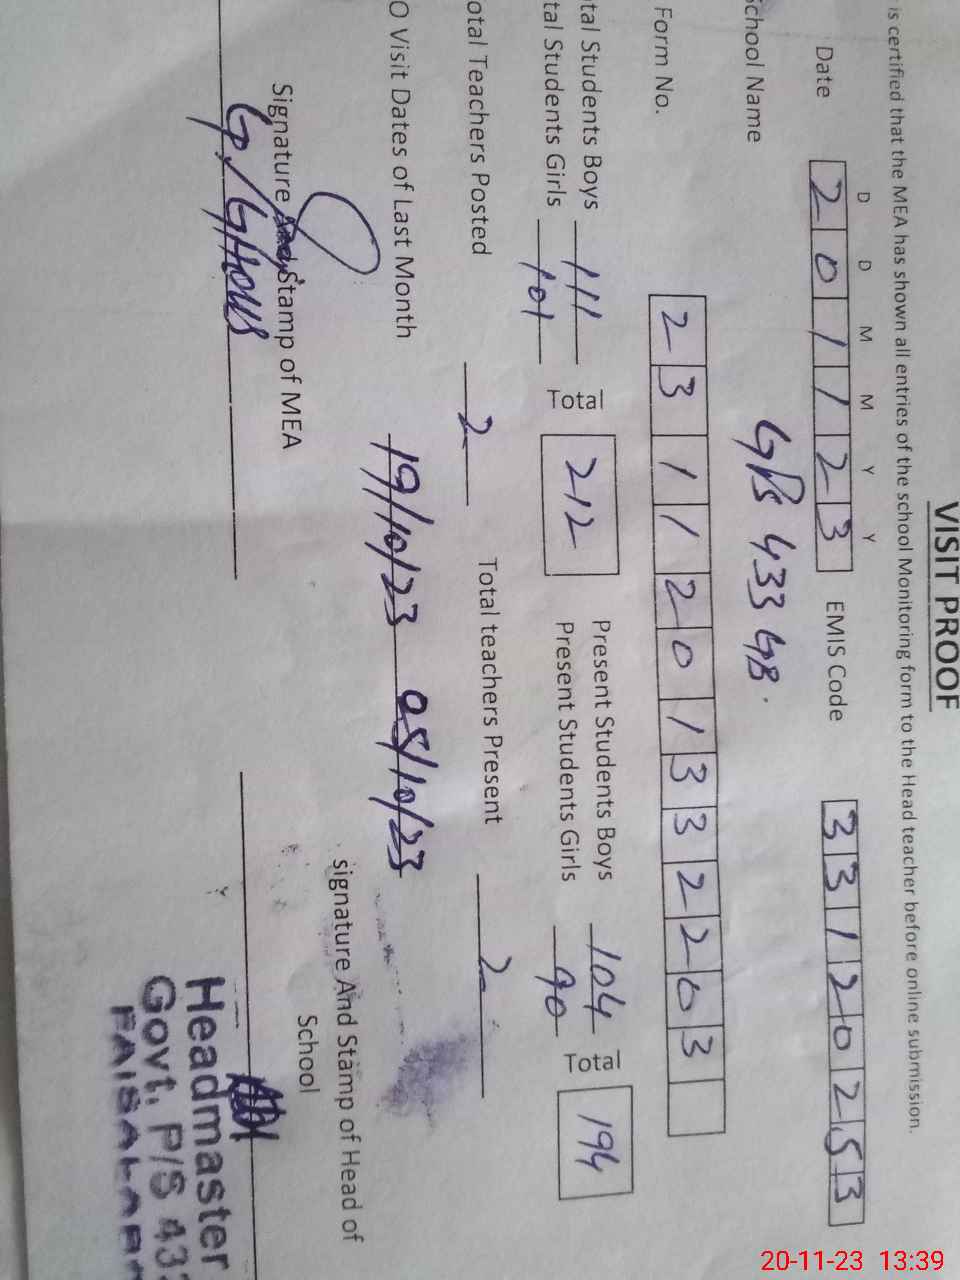 VISIT PROOF
is certified that the MEA has shown all entries of the school Monitoring form to the Head teacher before online submission.
D D M M Y Y
Date 2 0 1 1 2 3 EMIS Code 3 3 1 2 0 2 5 3
School Name GPS 433 GB.
Form No. 2 3 1 1 2 0 1 3 3 2 2 0 3
tal Students Boys 111 Total 212 Present Students Boys 104 Total 194
tal Students Girls 101 Present Students Girls 90
otal Teachers Posted 2 Total teachers Present 2
O Visit Dates of Last Month 19/10/23 05/10/23
Signature And Stamp of MEA
signature And Stamp of Head of
School
Headmaster
Govt. P/S 433
FAISALABAD
20-11-23 13:39